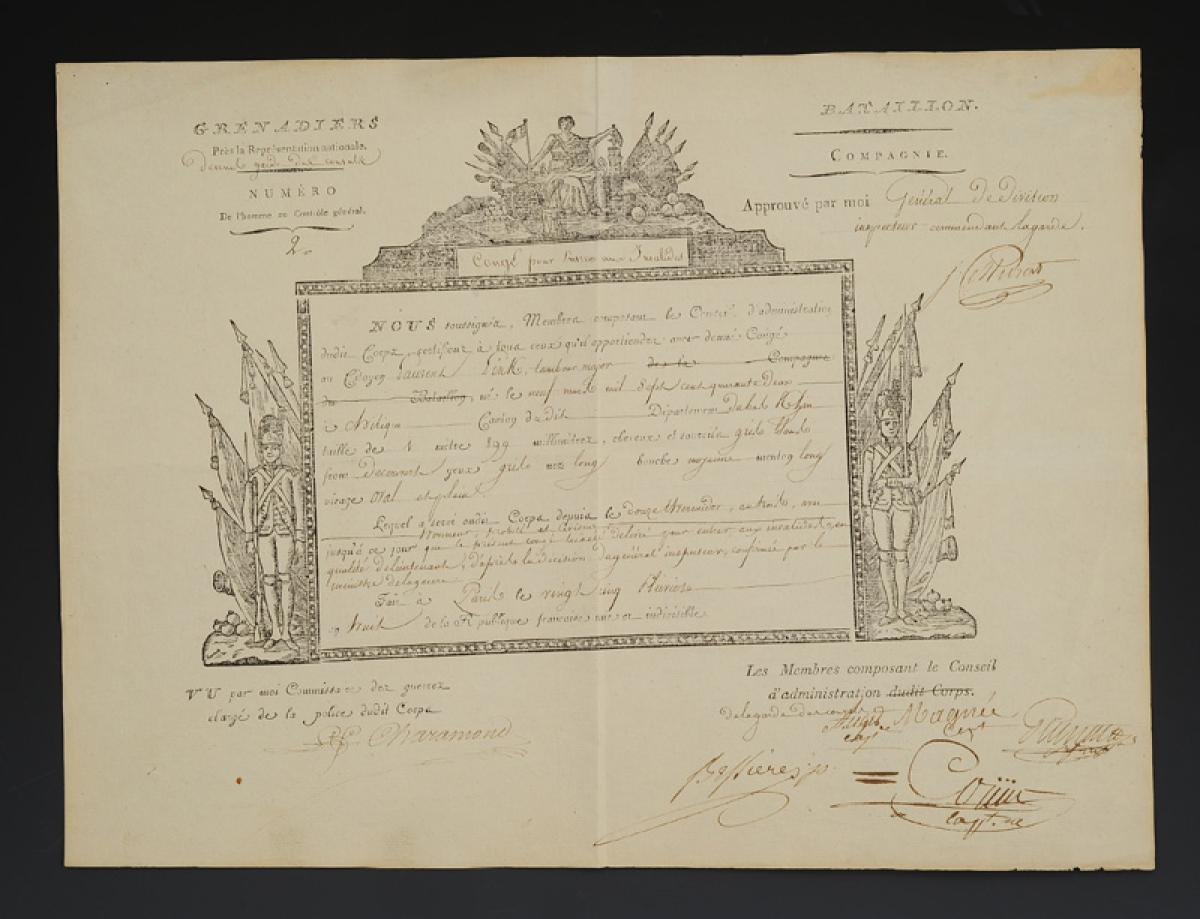 GRENADIERS
Près la Représentation nationale.
garde
NUMÉRO
De l'homme au Contrôle général.
2.
BATAILLON.
COMPAGNIE.
Approuvé par moi Général de division
inspecteur commandant lagarde.
Congé pour aux Invalides
NOUS soussignés, Membres composant le Conseil d'administration
dudit Corps, certifions à tous ceux qu'il appartiendra avoir donné Congé
au Citoyen Laurent Link, tambour major de la Compagnie
du Bataillon, né le neuf mil Sept cent quarante deux
à Canton dudit Département
taille de 1 mètre 899 millimètres, cheveux et sourcils gris blonds
front Découvert yeux gris nez long bouche moyenne menton long
visage Oval et plein
Lequel a servi audit Corps depuis le douze thermidor, an trois, avec
honneur, probité et
jusqu'à ce jour que le présent congé lui a été délivré pour entrer aux invalides, en
qualité de lieutenant, d'après la décision du général inspecteur, confirmée par le
ministre delaguerre
Fait à Paris le vingt cinq
an huit de la République française une et indivisible
VU par moi Commissaire des guerres
chargé de la police dudit Corps
Charamond
Les Membres composant le Conseil
d'administration dudit Corps.
delagarde des
Magnié
Capt
Bessieres